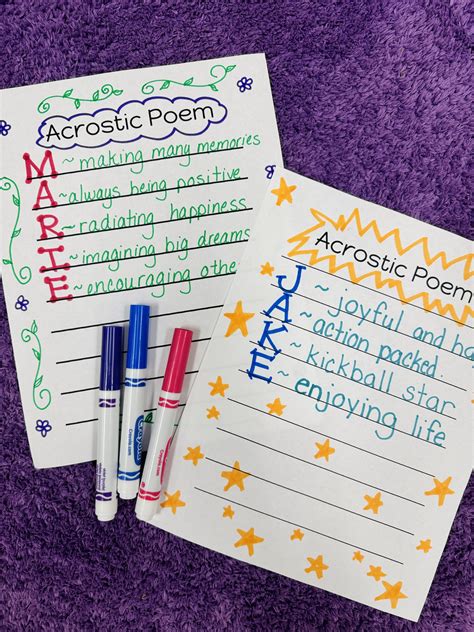 Acrostic Poem
M ~ making many memories
A ~ always being positive
R ~ radiating happiness
I ~ imagining big dreams
E ~ encouraging othe
Acrostic Poem
J ~ joyful and ha
A ~ action packed
K ~ kickball star
E ~ enjoying life
Crayola